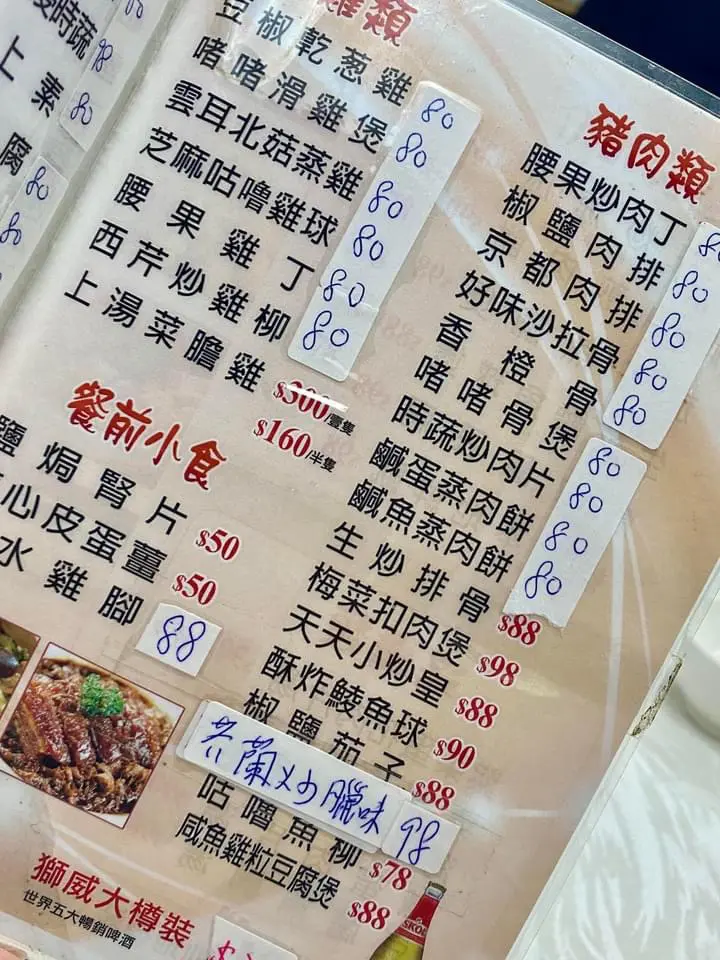 時蔬 98
上素 80
腐 80
80
雞類
豆椒乾葱雞 80
啫啫滑雞煲 80
雲耳北菇蒸雞 80
芝麻咕嚕雞球 80
腰果雞丁 80
西芹炒雞柳 80
上湯菜膽雞 $300/壹隻
$160/半隻
餐前小食
鹽焗腎片 $50
心皮蛋薑 $50
水雞腳 88
豬肉類
腰果炒肉丁 80
椒鹽肉排 80
京都肉排 80
好味沙拉骨 80
香橙骨 80
啫啫骨煲 80
時蔬炒肉片 80
鹹蛋蒸肉餅 80
鹹魚蒸肉餅 80
生炒排骨 $88
梅菜扣肉煲 $98
天天小炒皇 $88
酥炸鯪魚球 $90
椒鹽茄子 $88
芥蘭炒臘味 98
咕嚕魚柳 $78
咸魚雞粒豆腐煲 $88
獅威大樽裝
世界五大暢銷啤酒
SKOL